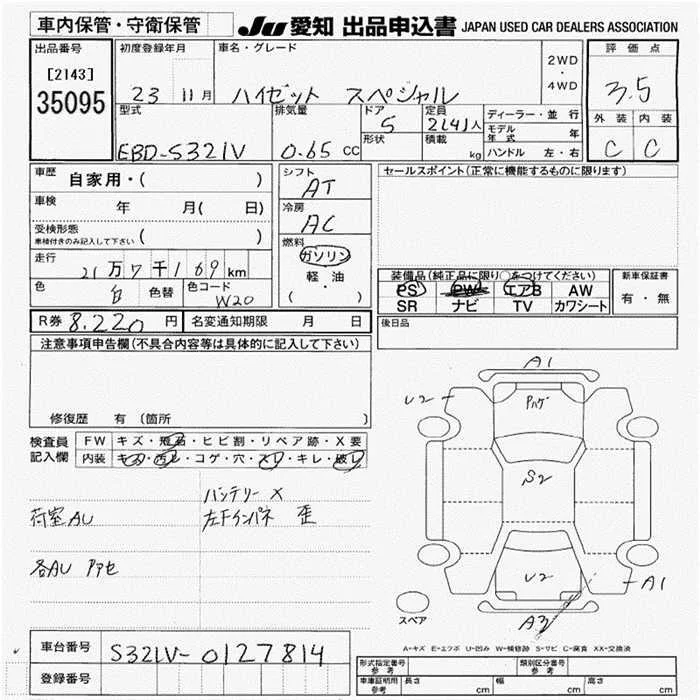 車内保管・守衛保管 JU 愛知 出品申込書 JAPAN USED CAR DEALERS ASSOCIATION
出品番号 初度登録年月 車名・グレード 2WD・4WD 評価点
[2143]
35095 23 11月 ハイゼット スペシャル 3.5
型式 排気量 ドア 定員 ディーラー・並行 外装 内装
EBD-S321V 0.65 CC 5 2(4)人 モデル年式 年 C C
形状 積載 kg ハンドル 左・右
車歴 自家用・( ) シフト AT セールスポイント(正常に機能するものに限ります)
車検 年 月( 日) 冷房 AC
受検形態 ( )
車検付きのみ記入して下さい
燃料 ガソリン
走行 21万7千169km 軽・油
色 白 色替 色コード W20 ( ・ )
装備品(純正品に限り○をつけてください) 新車保証書
PS PW エアB AW 有・無
SR ナビ TV カワシート
R券 8.220円 名変通知期限 月 日 後日品
注意事項申告欄(不具合内容等は具体的に記入して下さい)
修復歴 有(箇所 )
検査員 FW キズ・飛石・ヒビ割・リペア跡・X要
記入欄 内装 キズ・汚レ・コゲ・穴・スレ・キレ・破レ
バッテリー X
荷室AU 左Fインパネ 歪
各AU アセ
A1
U2
Pハゲ
S2
U2
A1
A3
スペア
A-キズ E-エクボ U-凹み W-補修跡 S-サビ C-腐食 XX-交換済
車台番号 S321V-0127814
登録番号
形式指定番号 参考 類別区分番号 参考
車庫証明用 参考 長さ cm 幅 cm 高さ cm